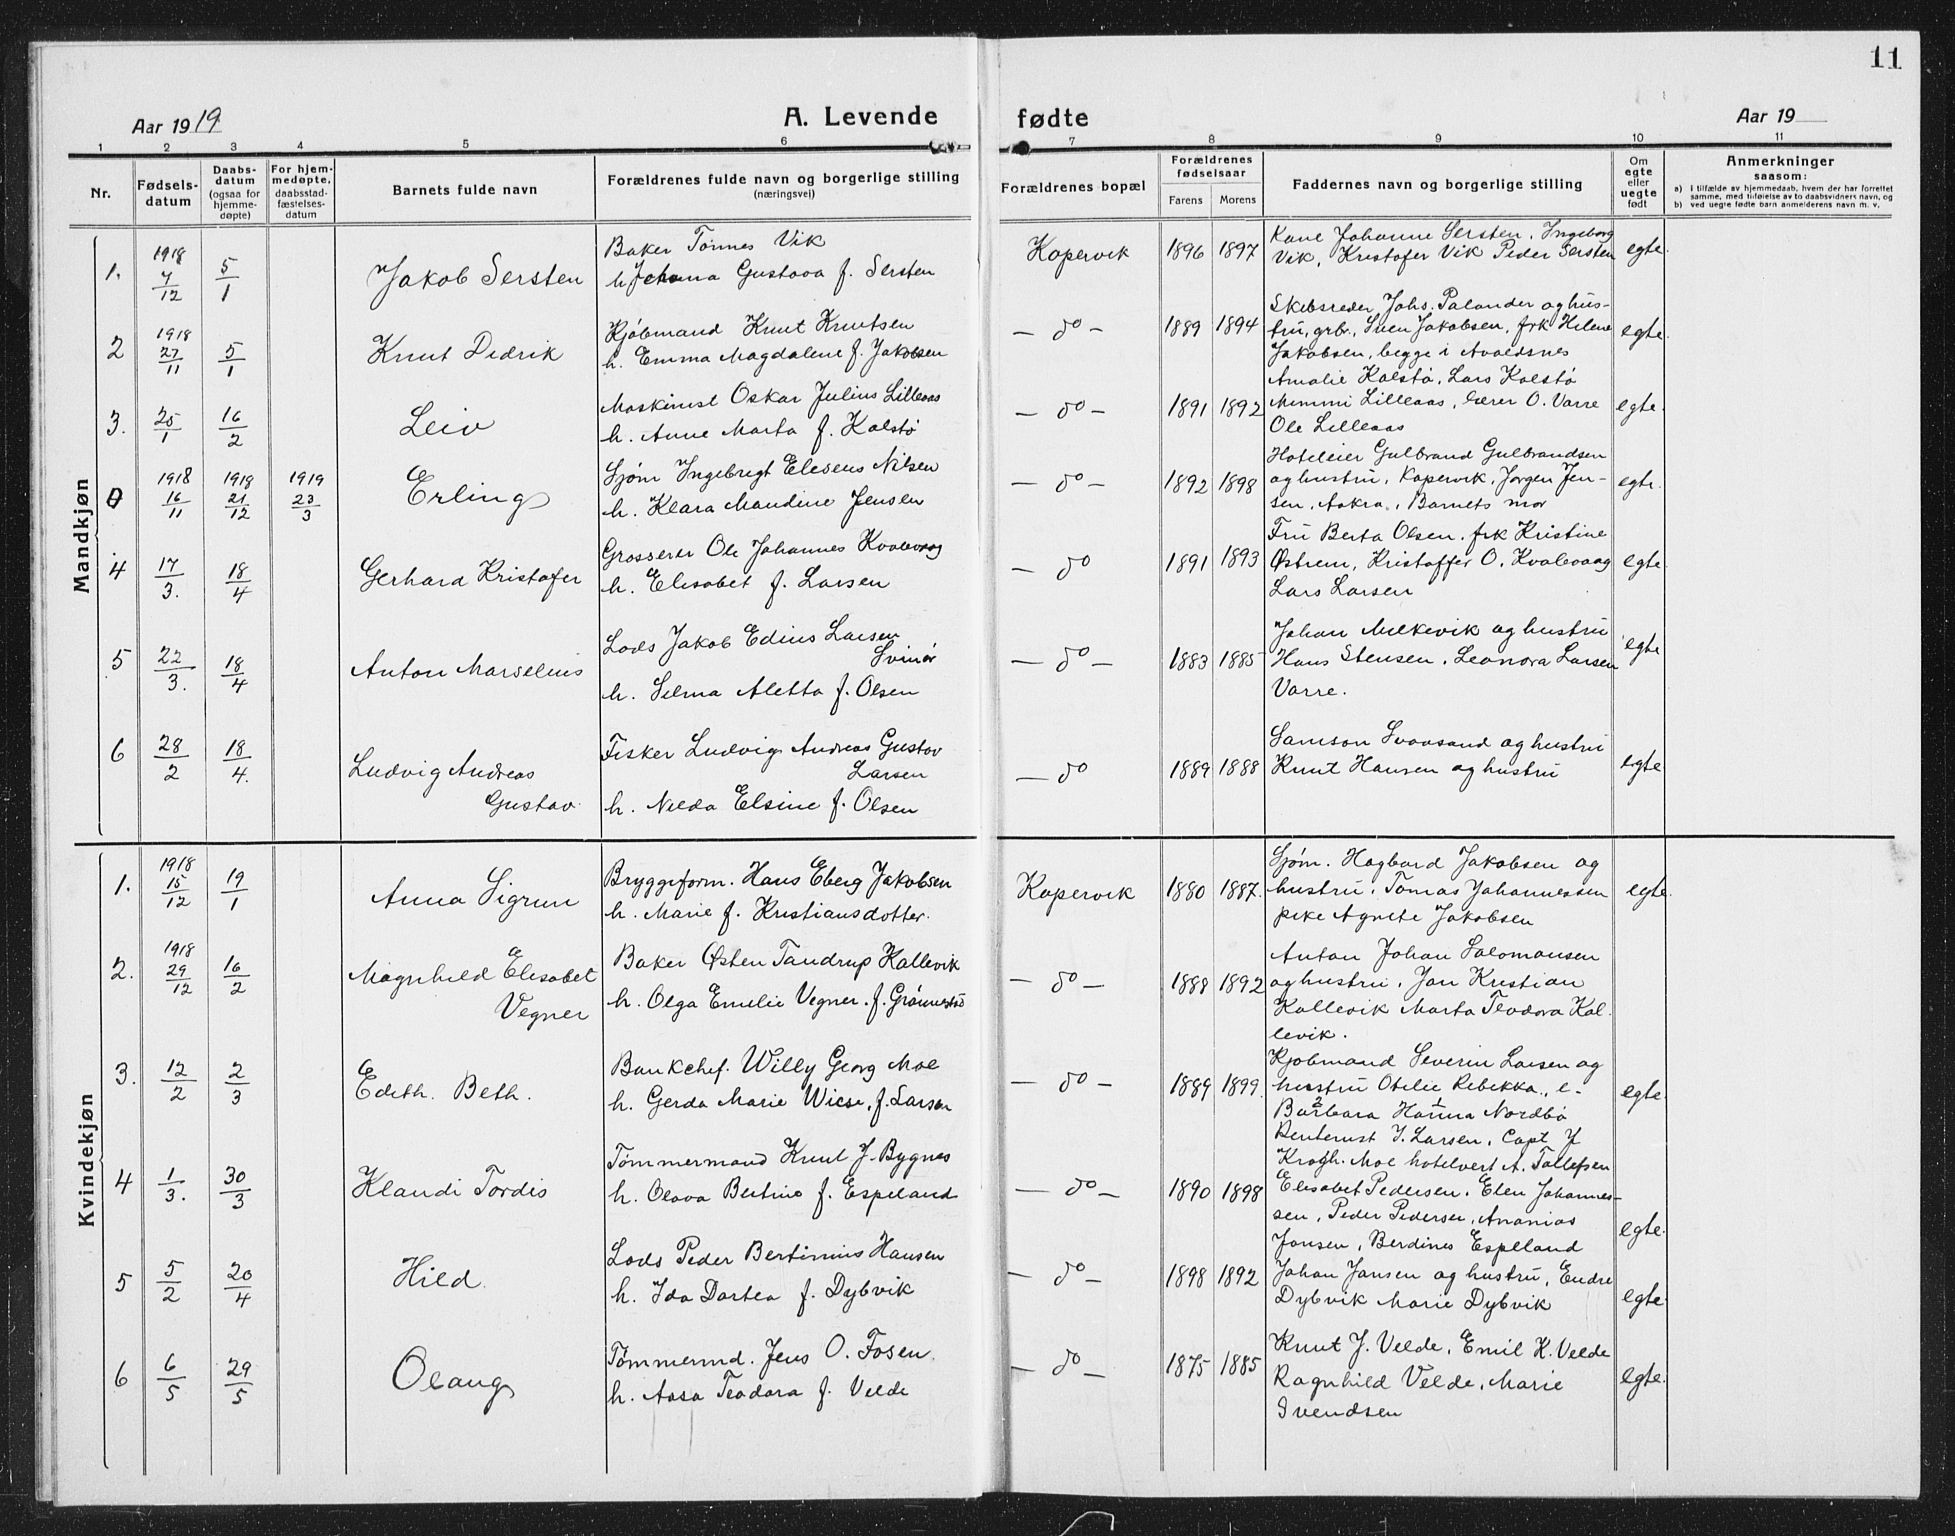 11
Aar 1919
A. Levende fødte
Aar 19
1 2 3 4 5 6 7 8 9 10 11
Nr.
Fødsels-
datum
Daabs-
datum
(ogsaa for
hjemme-
døpte)
For hjem-
medøpte,
daabsstad-
fæstelses-
datum
Barnets fulde navn
Forældrenes fulde navn og borgerlige stilling
(næringsvei)
Forældrenes bopæl
Forældrenes
fødselsaar
Farens Morens
Faddernes navn og borgerlige stilling
Om
egte
eller
uegte
født
Anmerkninger
saasom:
a) i tilfælde av hjemmedaab, hvem der har forrettet
samme, med tilføielse av to daabsvidners navn, og
b) ved uegte fødte barn anmelderens navn m. v.
Mandkjøn
1. 1918 7/12 5/1
Jakob Sersten
Baker Tønnes Vik
h. Johanna Gustava f. Sersten
Kopervik 1896 1897
Kone Johanne Sersten, Ingeborg
Vik, Kristofer Vik Peder Sersten
egte
2 1918 27/11 5/1
Knut Didrik
Kjøbmand Knut Knutsen
h. Emma Magdalene f. Jakobsen
— do — 1889 1894
Skibsreder Johs. Palander og hus-
tru, grb. Sven Jakobsen, frk Helene
Jakobsen, begge i Avaldsnes
egte
3. 25/1 16/2
Leiv
Maskinist Oskar Julius Lilleaas
h. Anne Marta f. Kalstø
— do — 1891 1892
Amalie Kalstø, Lars Kalstø
Mimmi Lilleaas, lærer O. Varre
Ole Lilleaas
egte
0 1918 16/11 1918 21/12 1919 23/3
Erling
Sjøm Ingebrigt Eleseus Nilsen
h. Klara Mandine Jensen
— do — 1892 1898
Hoteleier Gulbrand Gulbrandsen
og hustru, Kopervik, Jørgen Jen-
sen, Aakra, Barnets mor
egte
4 17/3. 18/4
Gerhard Kristofer
Grosserer Ole Johannes Kvalevaag
h. Elisabet f. Larsen
— do 1891 1893
Fru Berta Olsen, frk Kristine
Østrem, Kristoffer O. Kvalevaag
Lars Larsen
egte
5 22/3. 18/4
Anton Marselius
Lods Jakob Edius Larsen
Svinør
h. Selma Aletta f. Olsen
— do — 1883 1885
Johan Milkevik og hustru
Hans Stensen, Leonora Larsen
Varre.
egte
6 28/2 18/4.
Ludvig Andreas
Gustav
Fisker Ludvig Andreas Gustav
Larsen
h. Nilda Elsine f. Olsen
— do 1889 1888
Samson Svaasand og hustru
Knut Hansen og hustru
egte
Kvindekjøn
1. 1918 15/12 19/1
Anna Sigrun
Bryggeform. Hans Eberg Jakobsen
h. Marie f. Kristiansdotter.
Kopervik 1880 1887.
Sjøm. Hagbard Jakobsen og
hustru, Tomas Johannessen
pike Agnete Jakobsen
egte
2. 1918 29/12 16/2
Magnhild Elisabet
Vegner
Baker Østen Tandrup Kallevik
h. Olga Emelie Vegner. f. Grønnestad
— do — 1888 1892
Anton Johan Salomonsen
og hustru, Jan Kristian
Kallevik Marta Teodora Kal-
levik.
3. 12/2 2/3
Edith. Beth.
Bankchef. Willy Georg Moe
h. Gerda Marie Wiese, f. Larsen
— do — 1889 1899.
Kjøbmand Severin Larsen og
hustru Otilie Rebekka, e-
Barbara Hanna Nordbø
Renterist J. Larsen, Capt J
Krogh. Moe hotelvert A. Tollefsen
egte
4 1/3. 30/3
Klandi Tordis
Tømmermand Knut J. Bygnes
h. Olava Bertine f. Espeland
— do — 1890 1898
Elisabet Pedersen, Elen Johannes-
sen, Peder Pedersen, Ananias
Jonsen, Berdines Espeland
egte
5 5/2 20/4
Hild.
Lods Peder Bertinius Hansen
h. Ida Dortea f. Dybvik
— do — 1898 1892
Johan Jansen og hustru, Endre
Dybvik Marie Dybvik
egte
6 6/5 29/5
Olaug
Tømmermd. Jens O. Fosen.
h. Aasa Teodora f. Velde
— do — 1875 1885
Knut J. Velde, Emil K. Velde
Ragnhild Velde, Marie
Svendsen
egte.